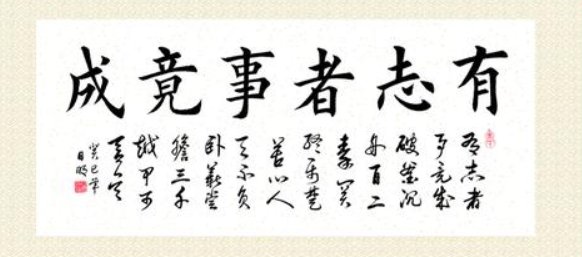 有志者事竟成
有志者
事竟成
破釜沉
舟百二
秦关
终属楚
苦心人
天不负
卧薪尝
胆三千
越甲可
吞吴
癸巳年